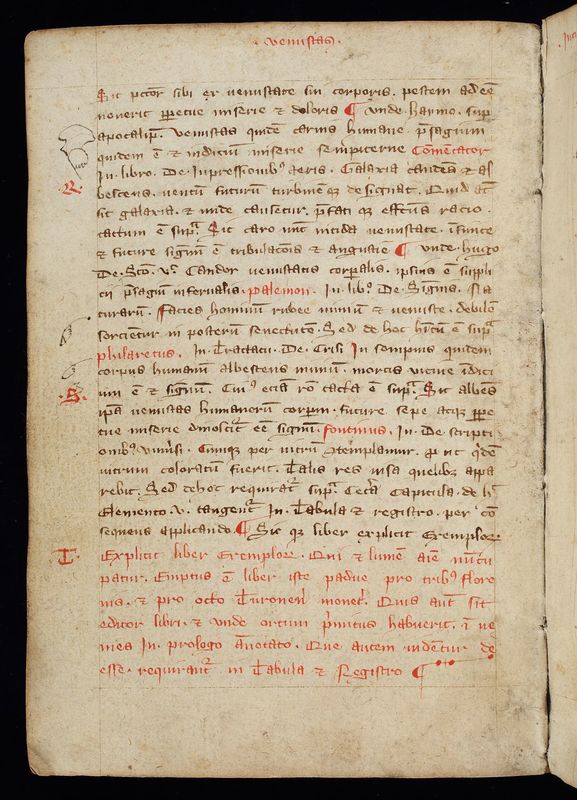 venustas.
Sic pctor sibi ex venustate sui corporis. pestem adee
noverit ppetue miserie et doloris ¶ vnde haymo. sup
apocalip. Venustas quide carnis humane psagium
quidem e et indiciu miserie sempiterne Comentator
In. libro. De. Inpressionibus aeris. Galaxia candens et al
bescens. ventu futuru turbinemque designat. Quid at
R.
sit galaxia. et unde causetur. pfati que effectus racio.
tactum e supra. Sic caro nunc nitida venustate.
et future signum e tribulacois et angustie ¶ Vnde. hugo
De. Candor venustatis corporalis. ipsius e suppli
cii psagiu infernalis. palemon. In. libro. De. Signis.
turarum. Facies hominum rubee nimium et venuste. debilem
sorcientur in posterum senectute. Sed de hoc e supra
philaretus. In. Tractatu. De. Crisi. In sompnis quidem
corpus humanu albescens nimiu. mortis vicine indici
um e et signum. Cuius ecia ro tacta e supra. Sic albes
S.
ipsa venustas humanorum corporum. future sepe atque ppe
tue miserie dinoscitur ee signum. fontinus. In. De. scripti
onibus vniversi. Cumque per vitrum contemplamur. put
vitrum coloratum fuerit. Talis res visa quelibet appa
rebit. Sed dehoc requiratur supra. Cetera Capitula. de
Elemento. v. tangentur In. Tabula et registro. per con
sequens applicando. ¶ Sic que liber explicit Exemplorum.
T.
Explicit liber Exemplorum. Qui et lumen anime nuncu
patur. Emptus e liber iste padue pro tribus flore
nis. et pro octo Turonensium monete. Quis autem sit
editor libri. et vnde ortum primitus habuerit. i ve
nies In. prologo Annotato. Que autem videntur de
esse. requirantur in Tabula et Registro ¶